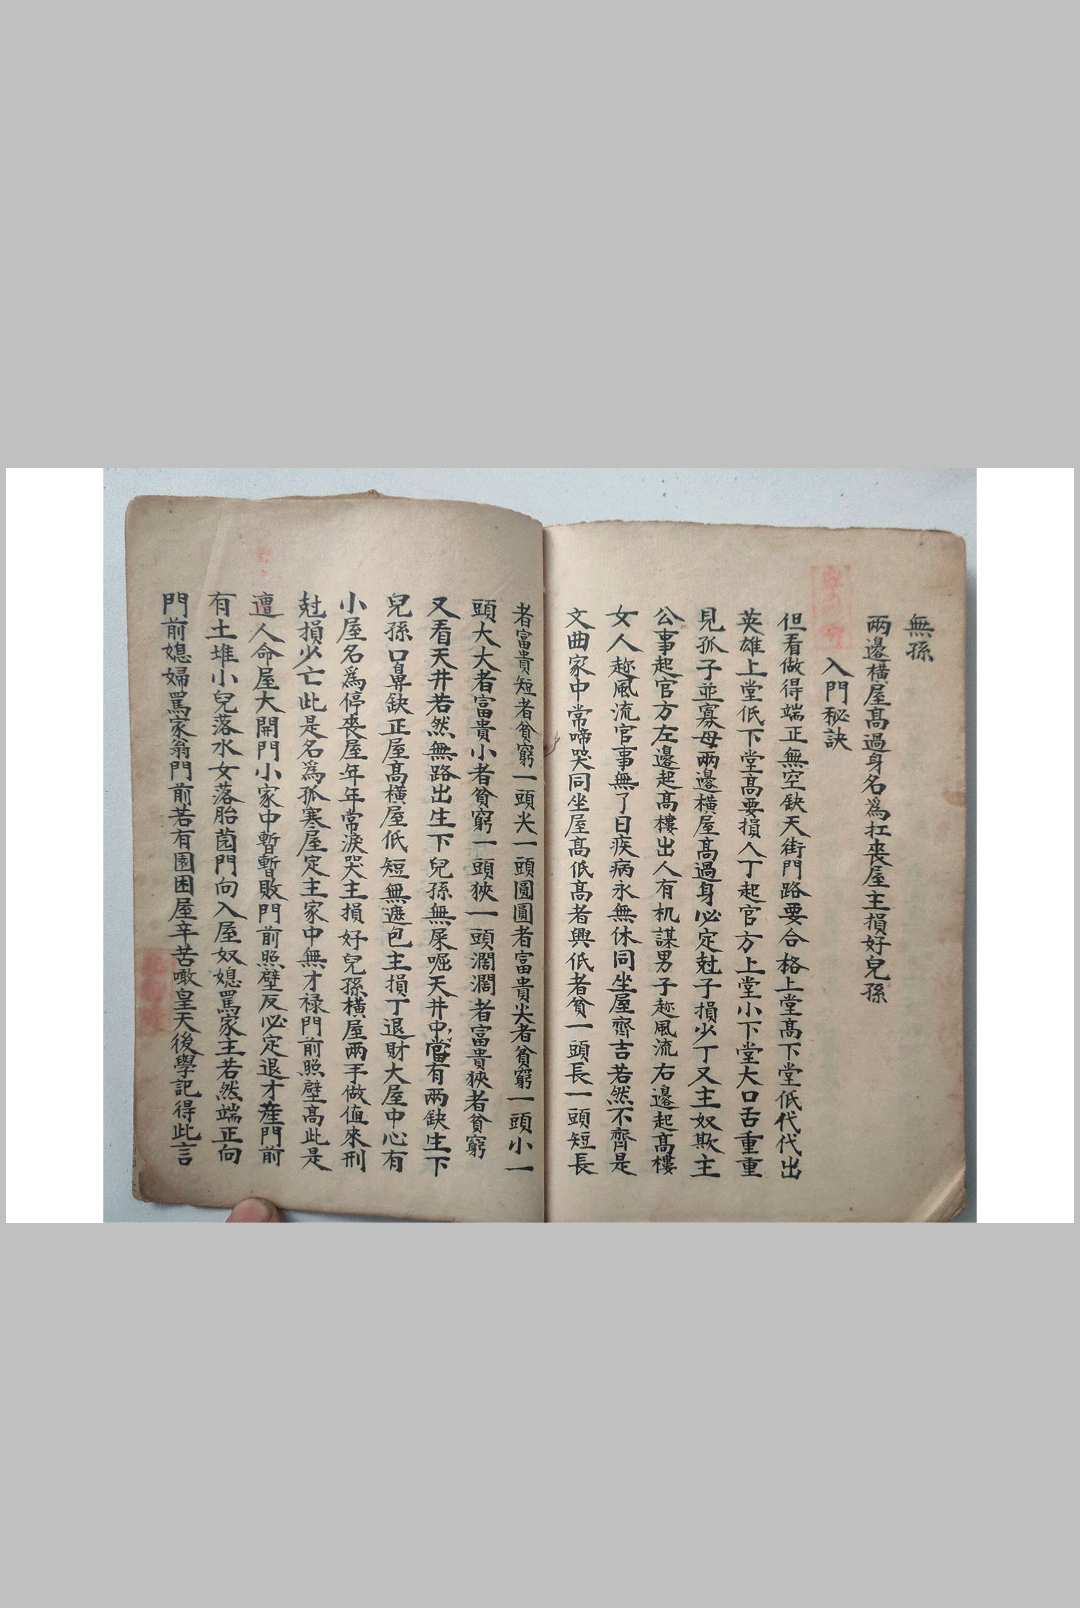 無孫
兩邊橫屋髙過身名爲扛喪屋主損好兒孫
入門秘訣
但看做得端正無空缺天街門路要合格上堂髙下堂低代代出
英雄上堂低下堂髙要損人丁起官方上堂小下堂大口舌重重
見孤子並寡母兩邊橫屋髙過身必定尅子損少丁又主奴欺主
公事起官方左邊起髙樓出人有机謀男子趂風流右邊起髙樓
女人趂風流官事無了日疾病永無休同坐屋齊吉若然不齊是
文曲家中常啼哭同坐屋髙低髙者興低者貧一頭長一頭短長
者富貴短者貧窮一頭尖一頭圓圓者富貴尖者貧窮一頭小一
頭大大者富貴小者貧窮一頭狹一頭濶濶者富貴狹者貧窮
又看天井若然無路出生下兒孫無屎𡲬天井中當有兩缺生下
兒孫口鼻缺正屋髙橫屋低短無遮包主損丁退財大屋中心有
小屋名爲停喪屋年年常淚哭主損好兒孫橫屋兩手做值來刑
尅損少亡此是名爲孤寒屋定主家中無才禄門前照壁髙此是
遭人命屋大開門小家中暫暫敗門前照壁反必定退才産門前
有土堆小兒落水女落胎茵門向入屋奴媳罵家主若然端正向
門前媳婦罵家翁門前若有園困屋辛苦噉皇天後學記得此言